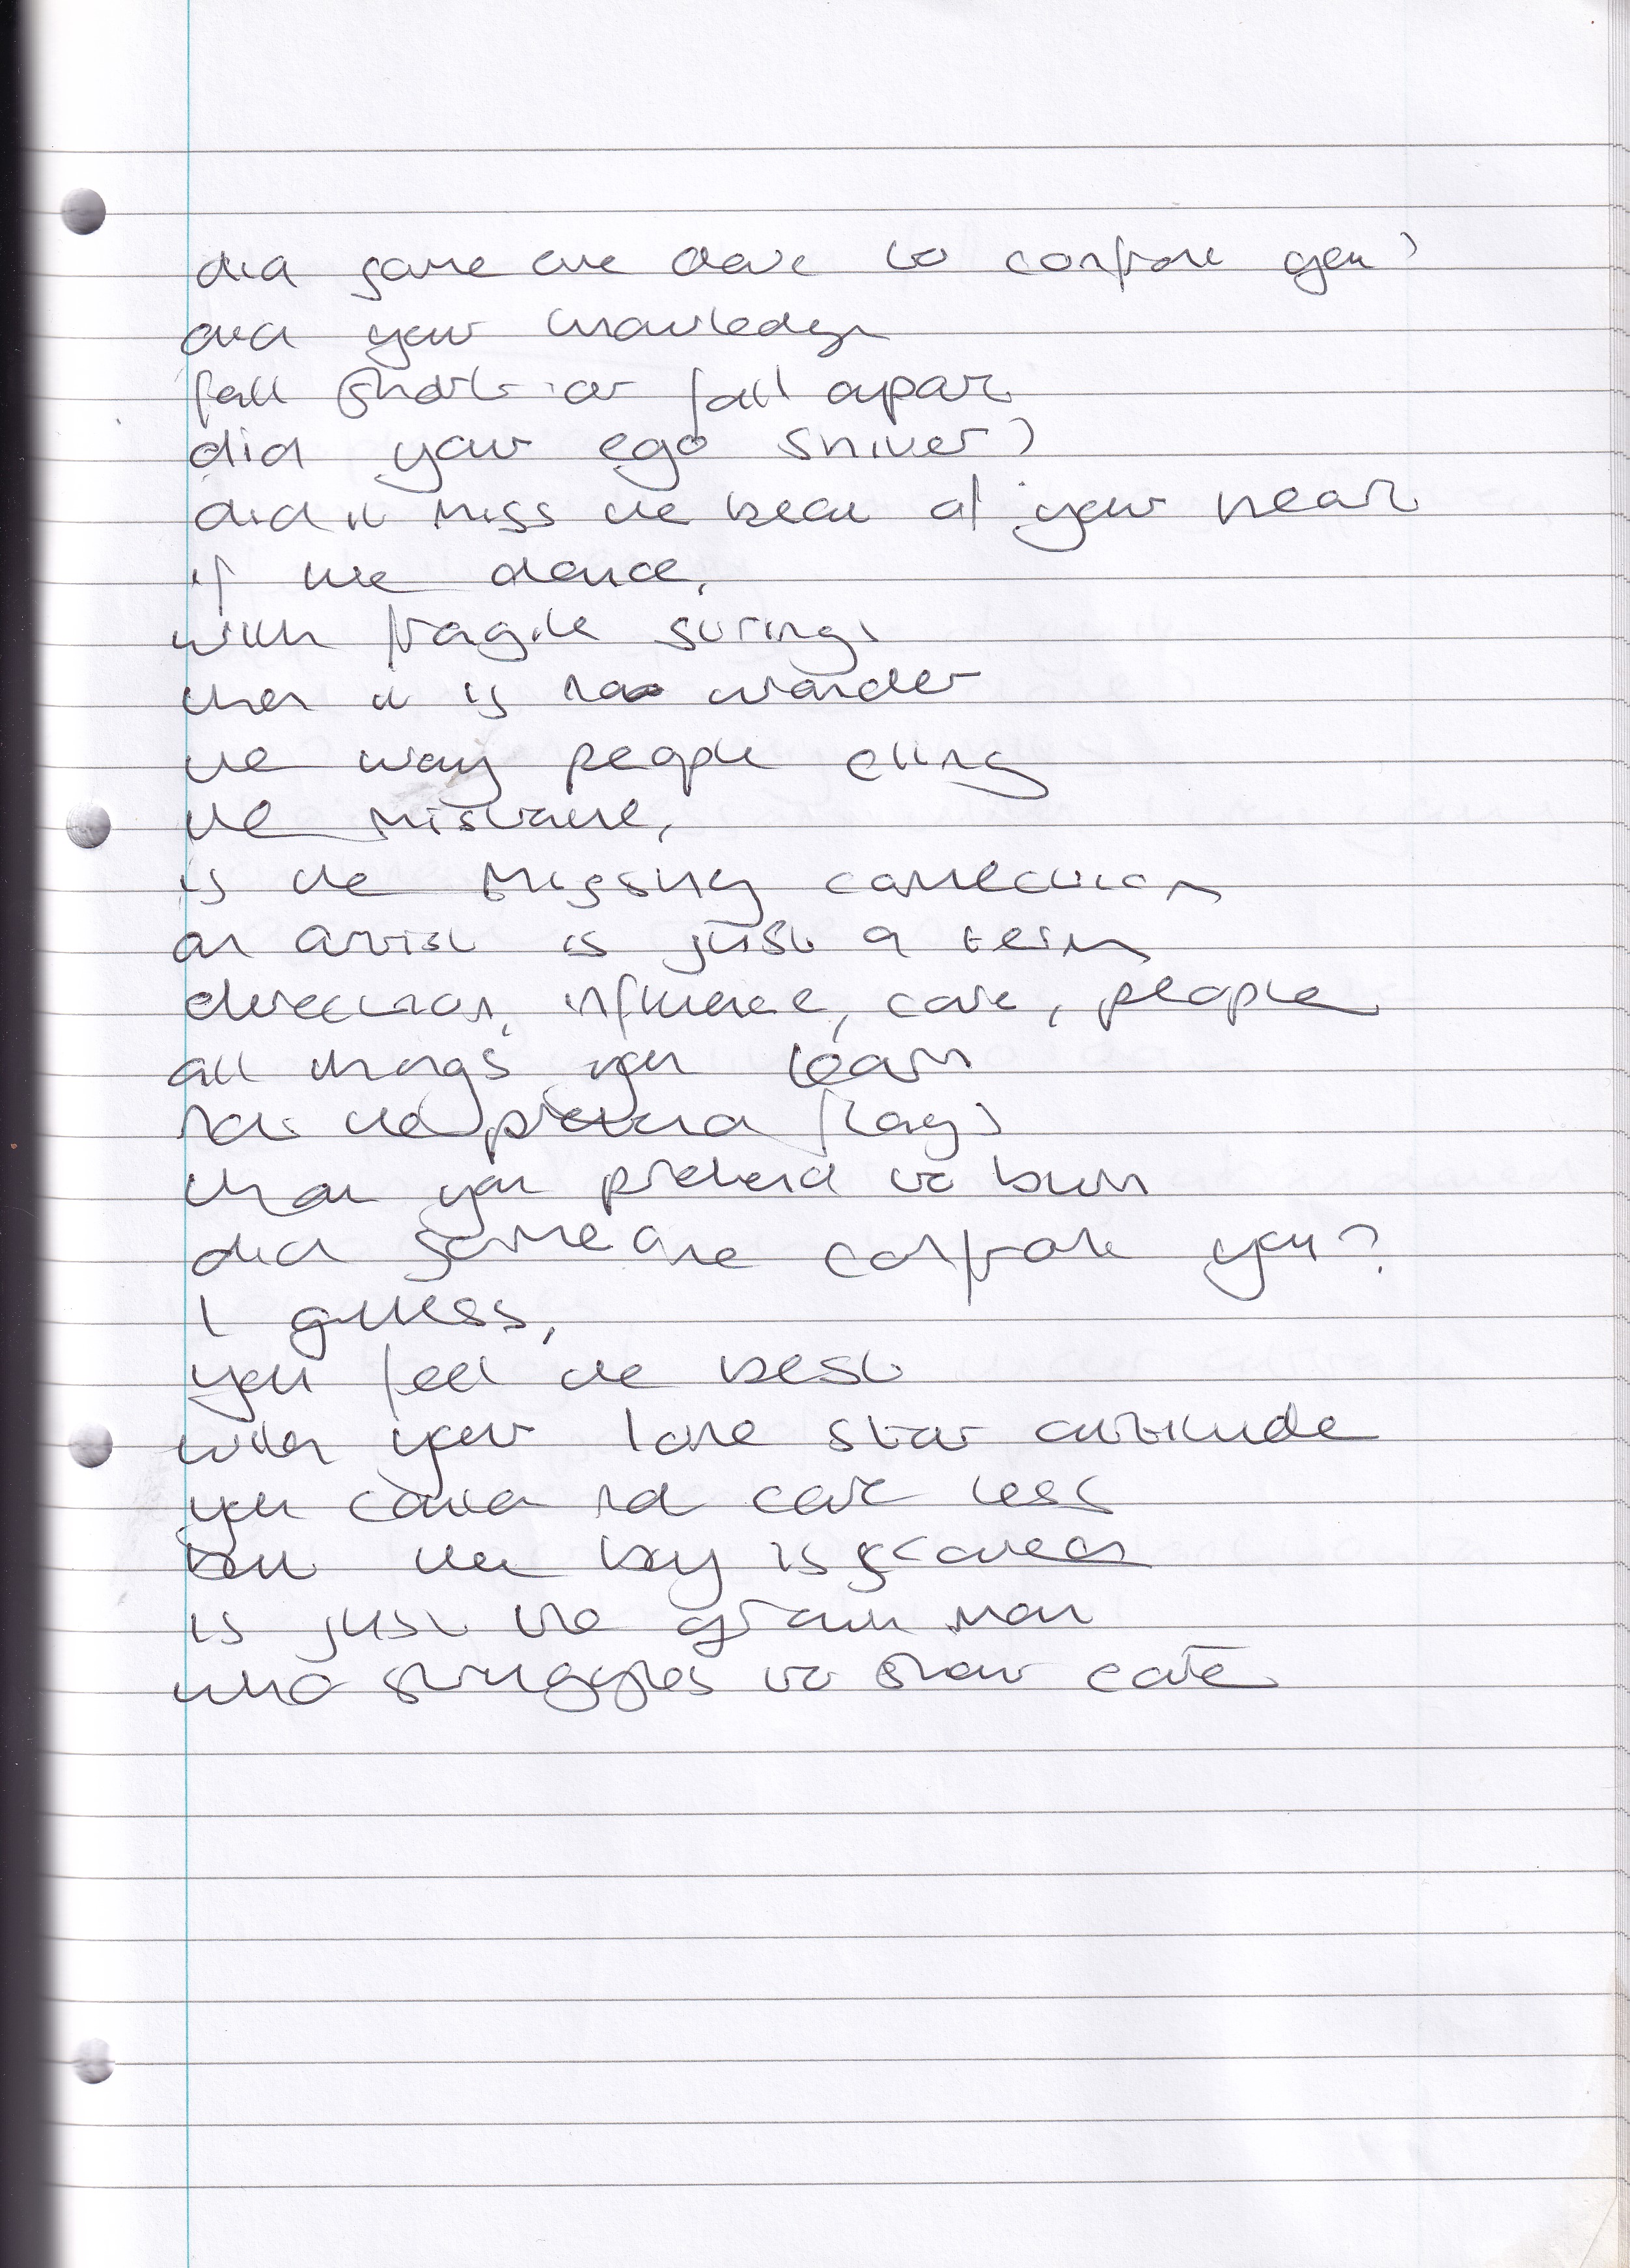 did some one dare to confront you?
did your knowledge
fall short or fall apart
did your ego shiver?
did it miss the beat of your heart
if we dance,
with fragile strings
then it is no wonder
the way people cling
the mistake,
is the missing connection
an artist is just a term
direction, influence, care, people
all things you learn
not the pretend flags
that you pretend to burn
did some one confront you?
I guess,
you feel the best
with your lone star attitude
you could not care less
but the boy is scared
is just the grown man
who struggles to show care